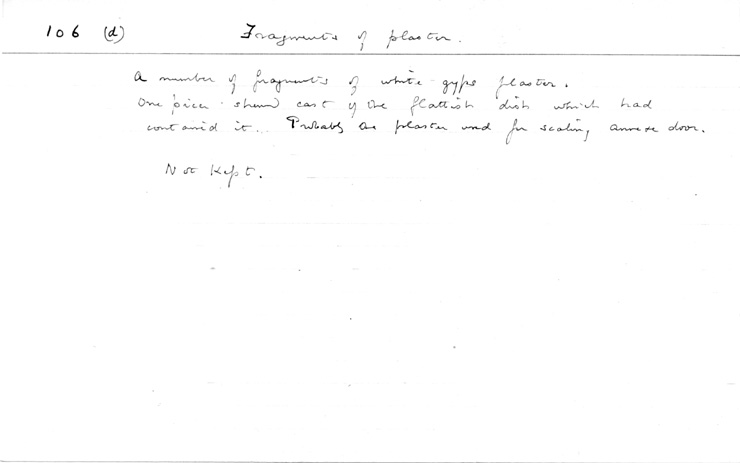 106 (d) Fragments of plaster.
A number of fragments of white gyps plaster.
One piece shewed cast of the flattish dish which had
contained it. Probably the plaster used for sealing annexe door.
Not Kept.